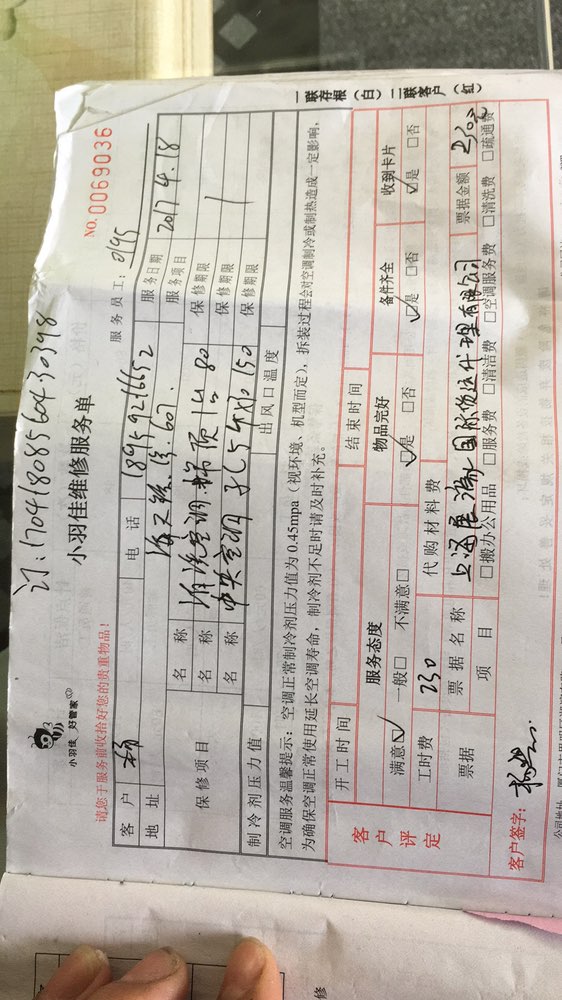 订:17041808560430398
小羽佳 好管家
小羽佳维修服务单
NO.0069036
请您于服务前收拾好您的贵重物品!
服务员工: 0195
客户 杨 电话 18959216652 服务日期 2017.4.18
地址 服务项目
保修项目 名称 保修期限
名称 保修期限
名称 保修期限
制冷剂压力值 出风口温度
空调服务温馨提示: 空调正常制冷剂压力值为 0.45mpa(视环境、机型而定),拆装过程会对空调制冷或制热造成一定影响,
为确保空调正常使用延长空调寿命,制冷剂不足时请及时补充。
客户评定 开工时间 结束时间
服务态度 物品完好 备件齐全 收到卡片
满意☑ 一般□ 不满意□ ☑是 □否 ☑是 □否 ☑是 □否
工时费 230 代购材料费 票据金额 230元
票据 票据名称 上海展瀚国际货运代理有限公司
项目 □搬办公用品 □服务费 □清洁费 □空调服务费 □清洗费 □疏通费
客户签字:
一联存根(白)二联客户(红)
公司地址:
修